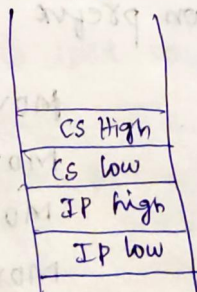 CS High
CS low
IP high
IP low